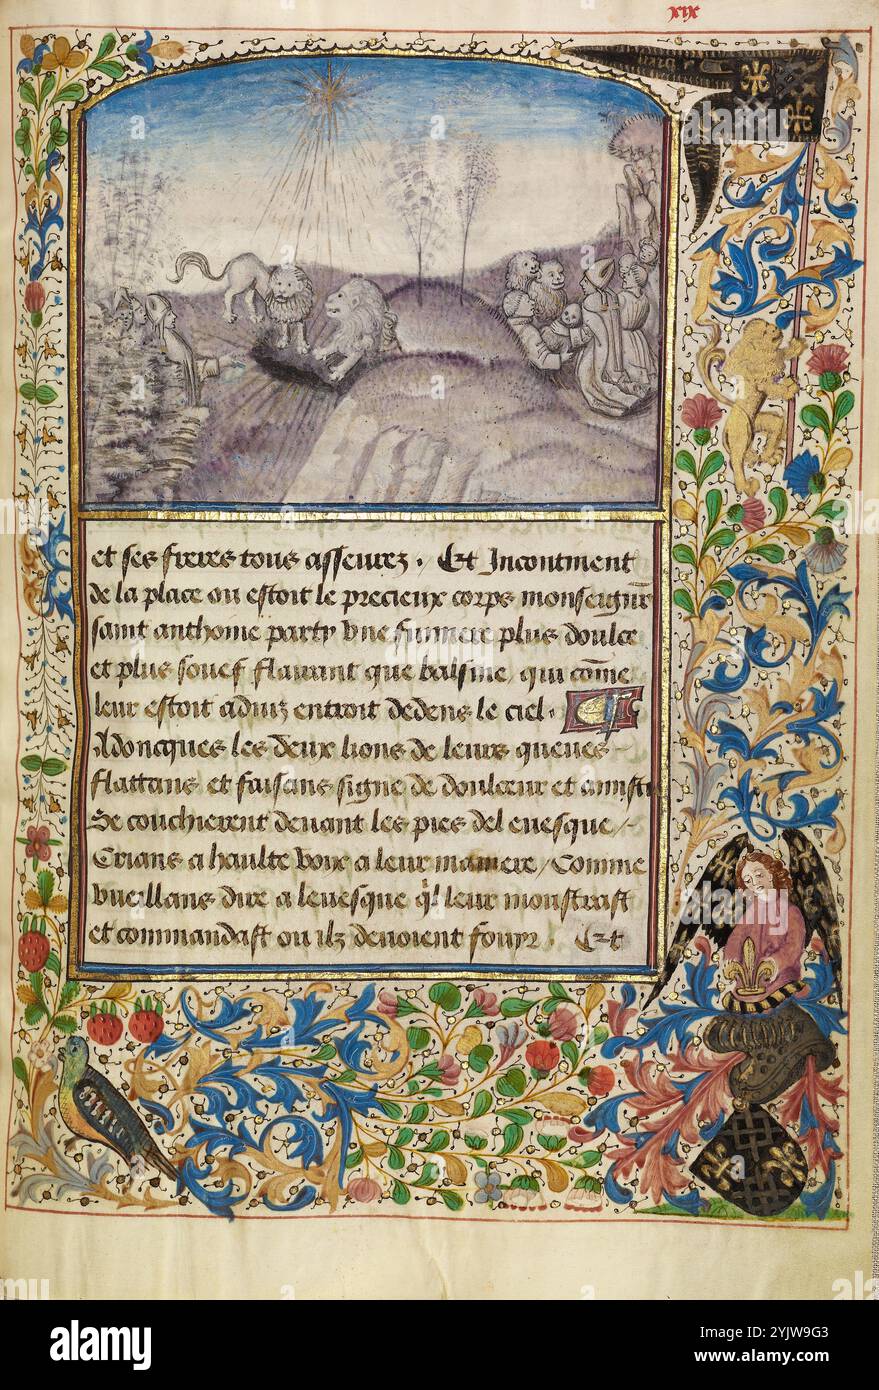 xix
et ses freres tous asseurez . Et Incontinent
de la place ou estoit le precieux corps monseigneur
saint anthoine party vne fumiere plus doulce
et plus souef flairant que balsme / qui comme
leur estoit aduiz entroit dedens le ciel .
Adoncques les deux lions de leurs queues
flattans et faisans signe de doulceur et
Se couchierent deuant les pies del euesque /
Crians a haulte voix a leur maniere / Comme
vueillans dire a leuesque ql leur monstrast
et commandast ou ilz deuoient fouyr . Et
alamy
Image ID: 2YJW9G3
www.alamy.com